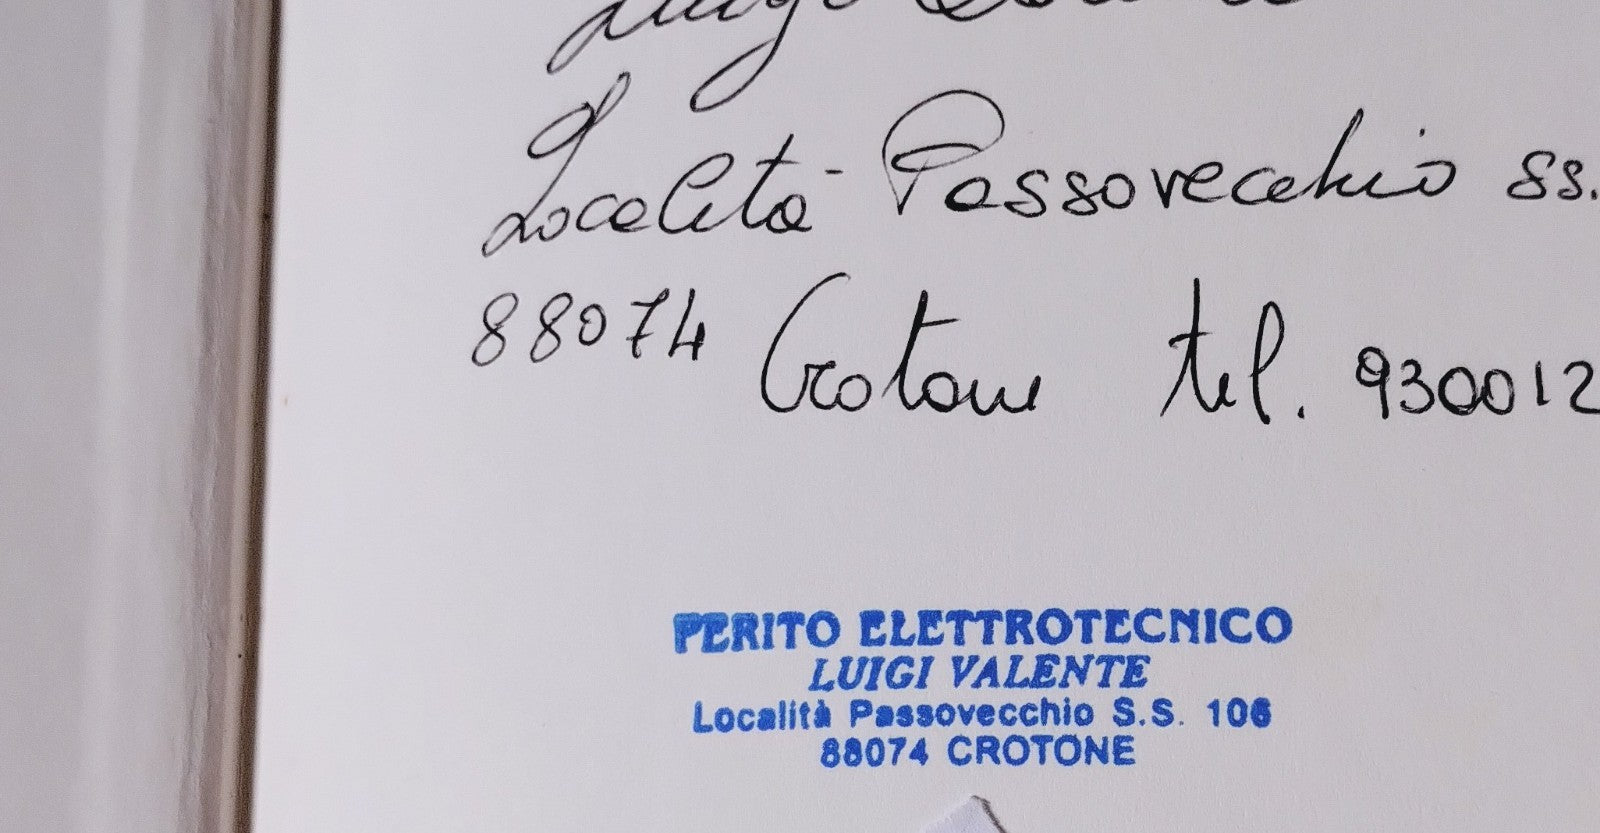 Luigi
Località Passovecchio ss.
88074 Crotone tel. 930012
PERITO ELETTROTECNICO
LUIGI VALENTE
Località Passovecchio S.S. 106
88074 CROTONE